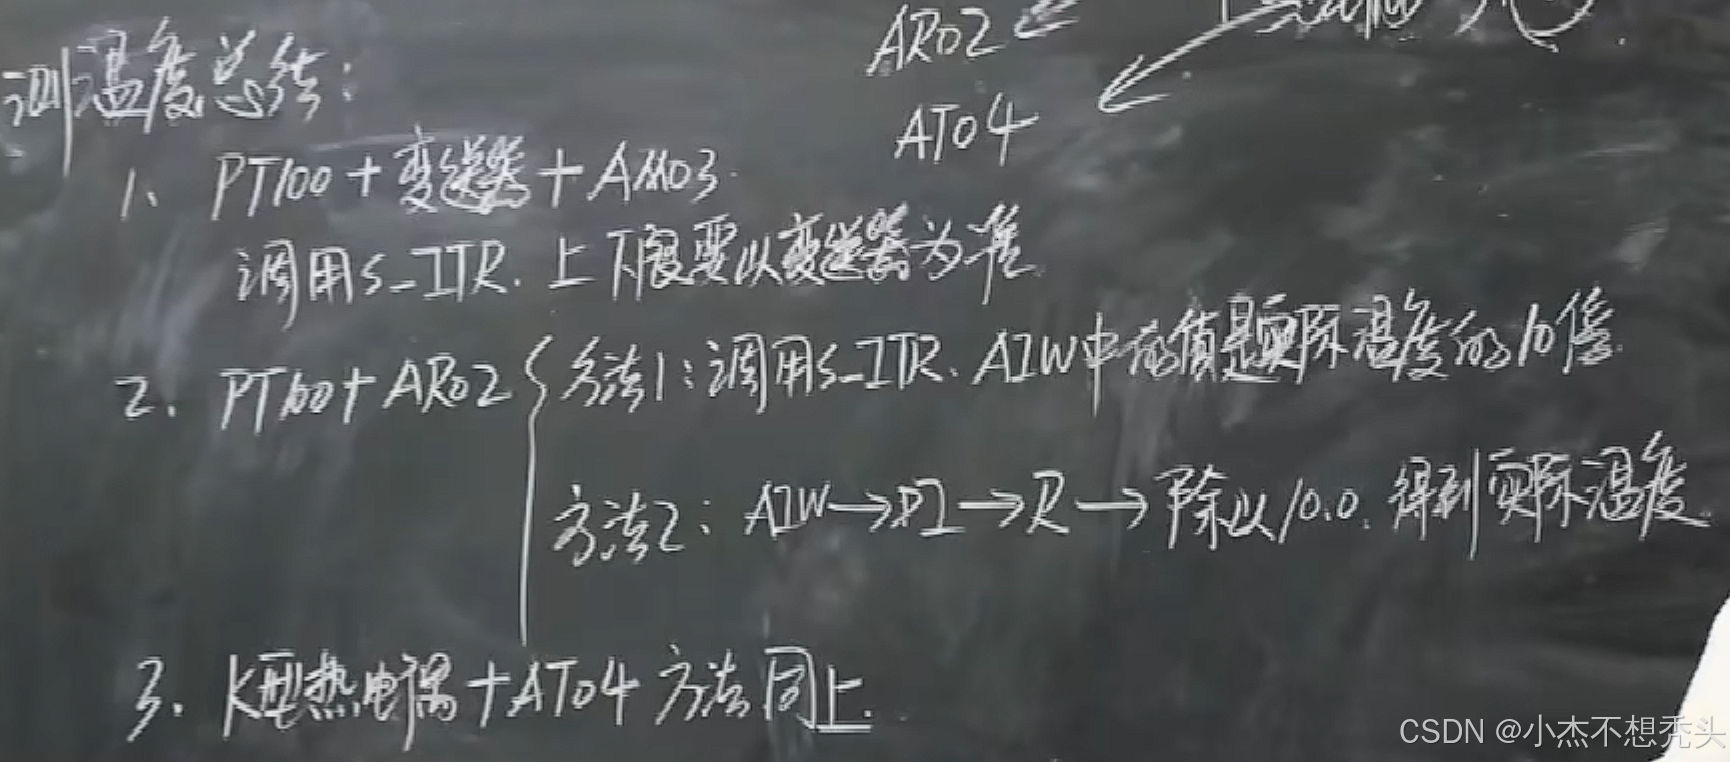 AR02
AT04
测温度总结:
1、PT100+变送器+AM03.
调用S_ITR.上下限要以变送器为准
2、PT100+AR02 方法1:调用S_ITR、AIW中的值是实际温度的10倍.
方法2: AIW→DI→R→除以10.0.得到实际温度.
3、K型热电偶+AT04 方法同上.
CSDN @小杰不想秃头